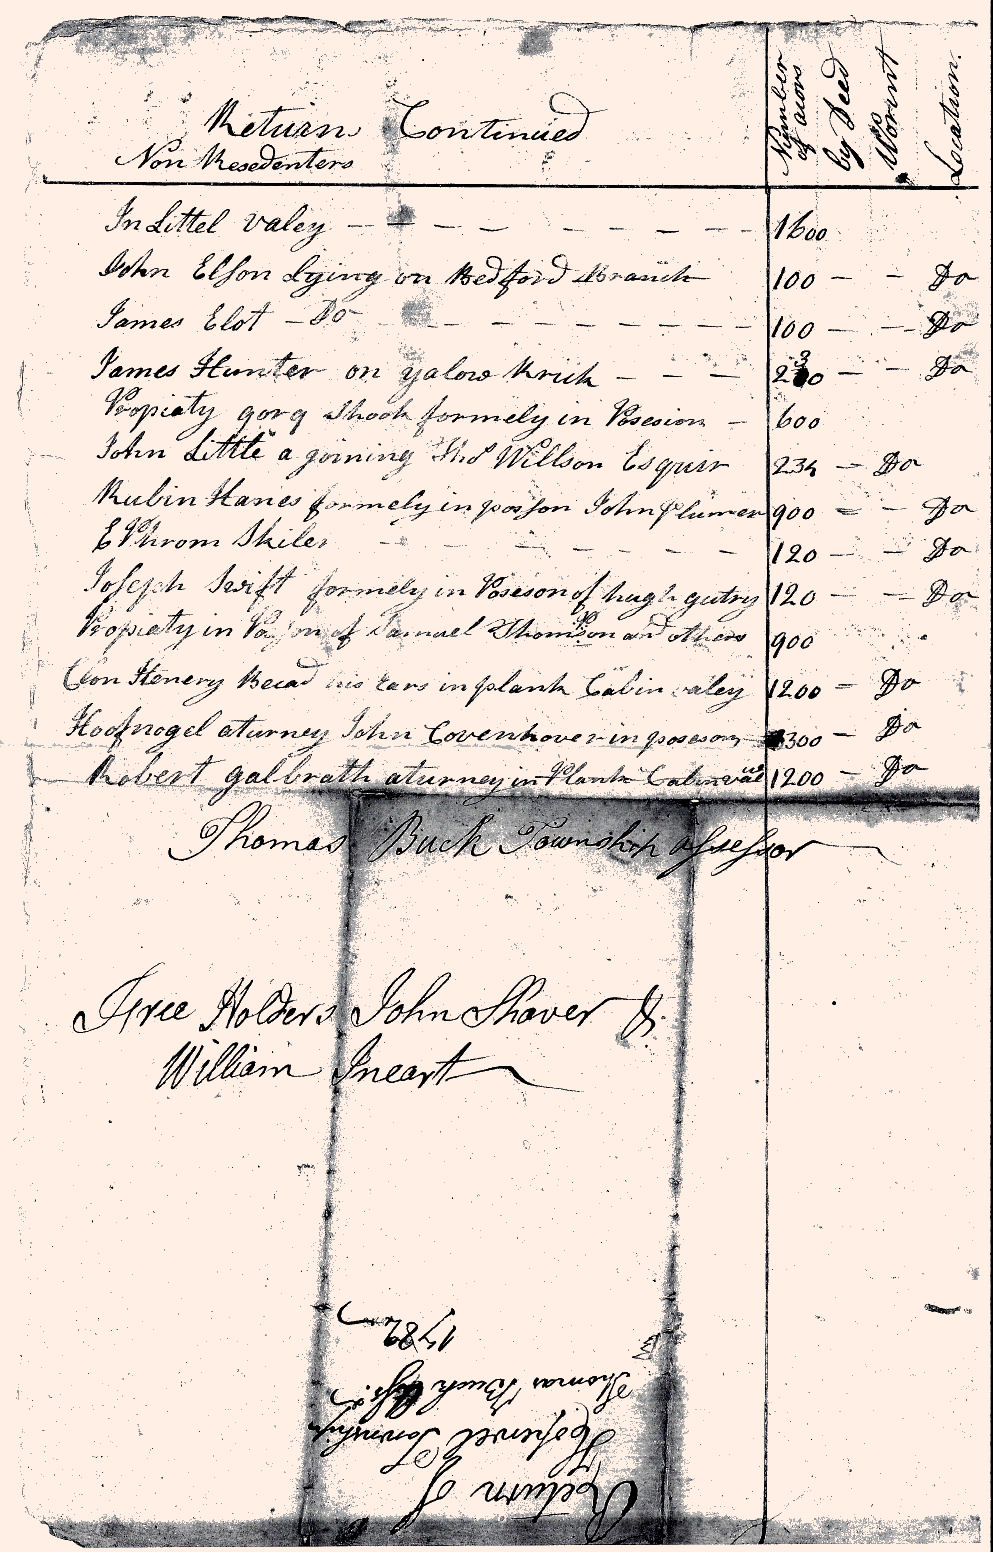 Return Continued
Non Resedenters
Number of acors
by Deed
Worint
Location.
In Littel valey — — — — — — — — — 1600
John Elson Lying on Bedford Branch 100 — — Do
James Elot — Do — — — — — — — 100 — — Do
James Hunter on yalow Krick — — — 230 — — Do
Propiaty gorg Shook formely in Posesion — 600
John Little a joining Thos Willson Esquir 234 — Do
Rubin Hanes formely in posson John Plumer 900 — — Do
EPhrom Skiler — — — — — — — 120 — — Do
Joseph Swift formely in Poseson of hugh gutry 120 — — Do
Propiaty in Posson of Samuel Thomson and others 900
Henery Becad his Ears in plank Cabin valey 1200 — Do
Hoofnogel aturney John Covenhover in poseson 300 — Do
Robert galbrath aturney in Plank Cabin val 1200 — Do
Thomas Buck Township assessor
Free Holders John Shaver &
William Ineart
Return of
Hopewel Township
Thomas Buck
1782